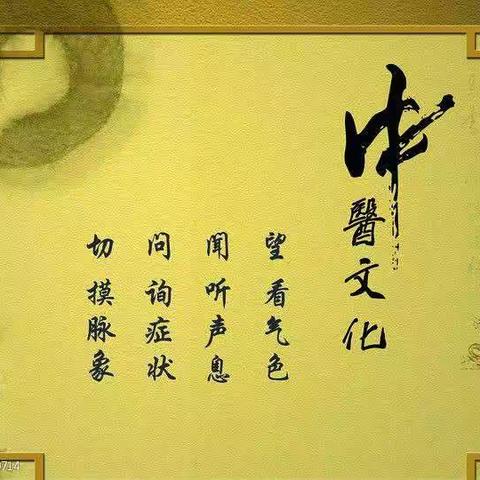 中醫文化
望 看气色
聞 听声息
问 询症状
切 摸脉象
0714